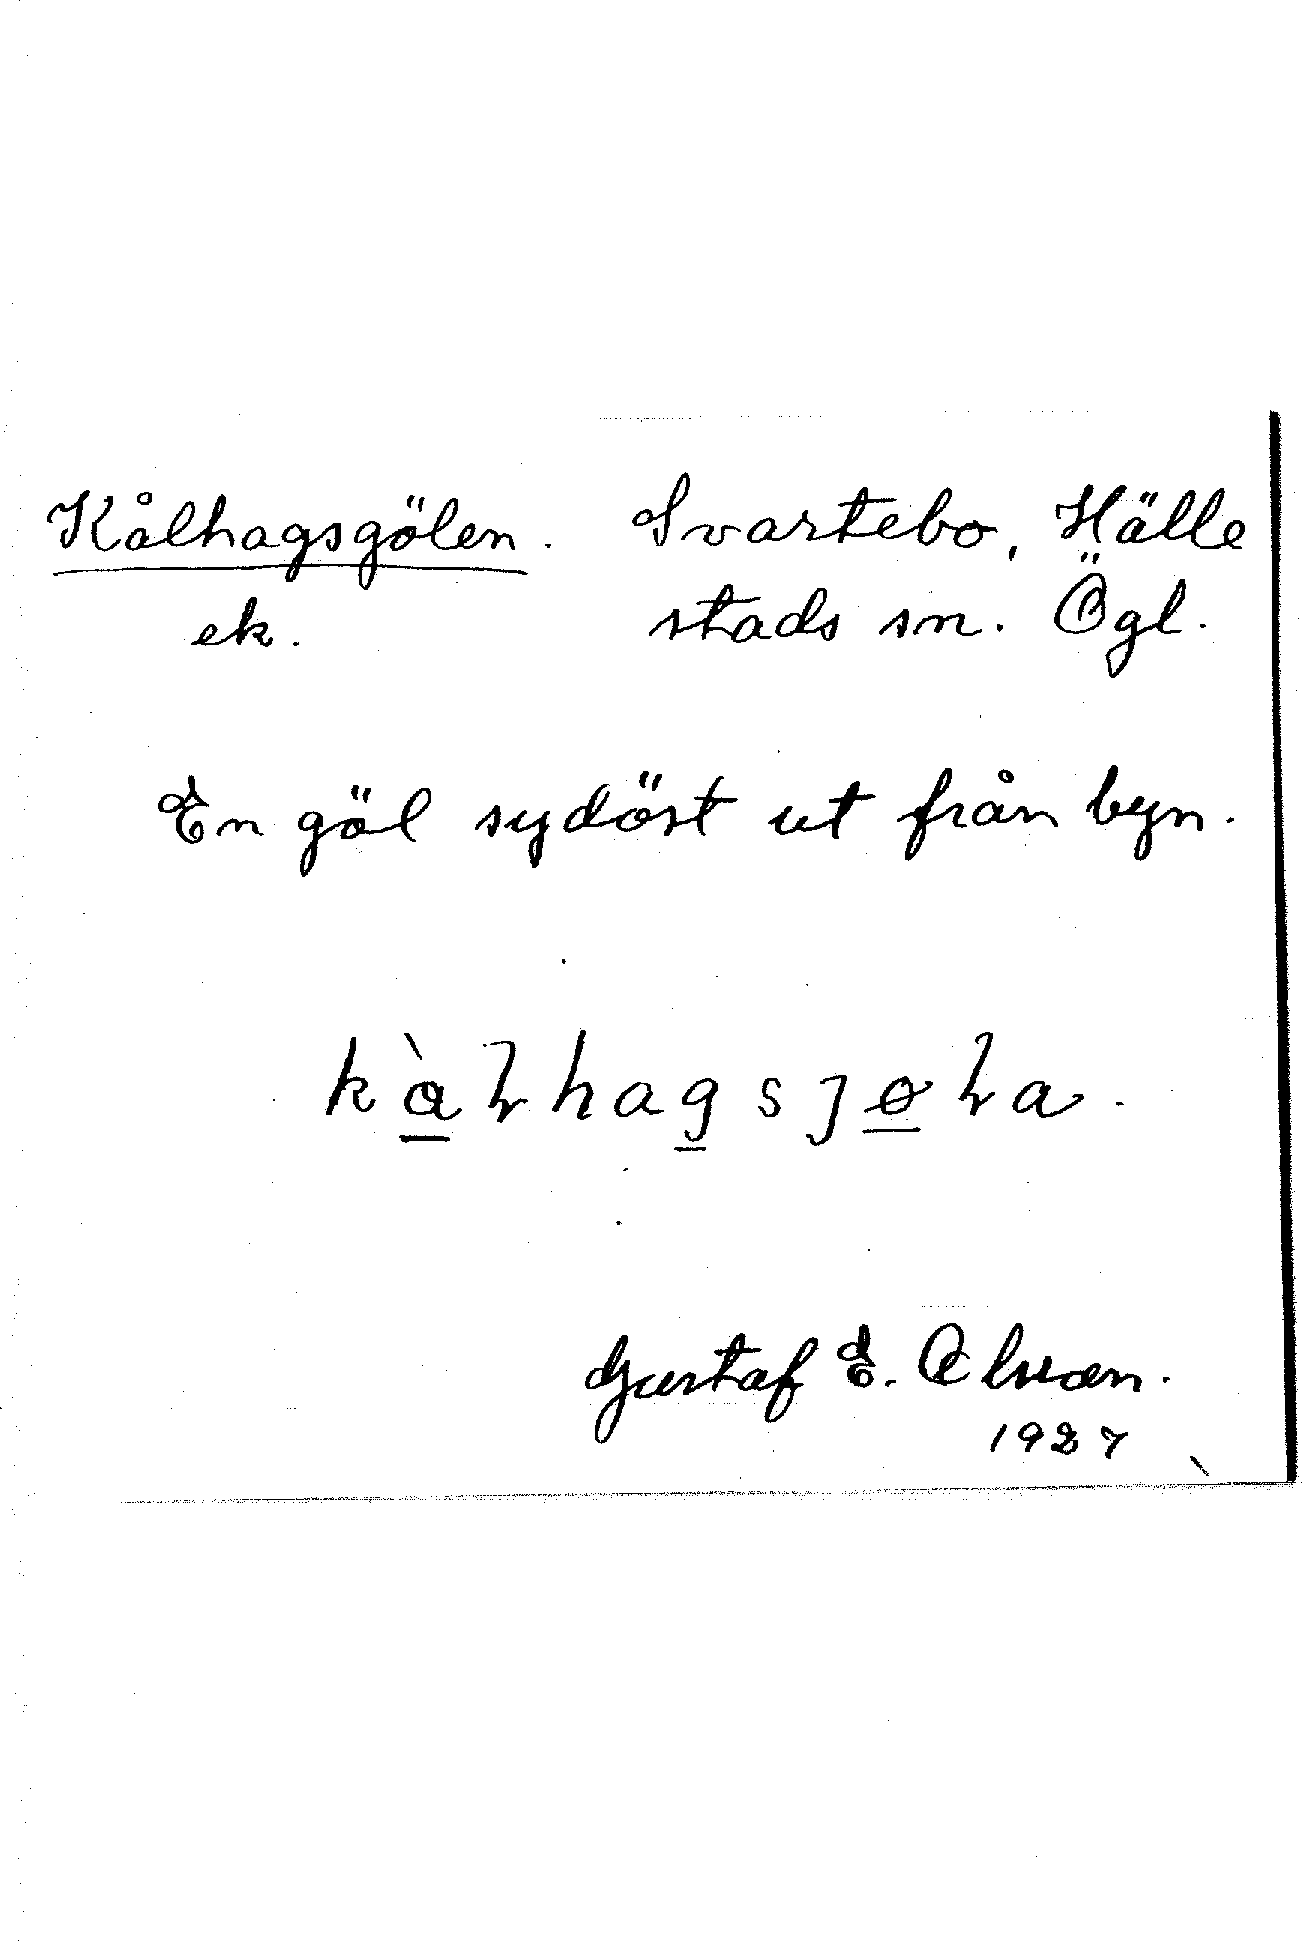 Kålhagsgölen. Svartebo, Hälle
ek. stads sn. Ögl.
En göl sydöst ut från byn.
kàⱹhagsȷøⱹa.
Gustaf E. Alvan.
1927